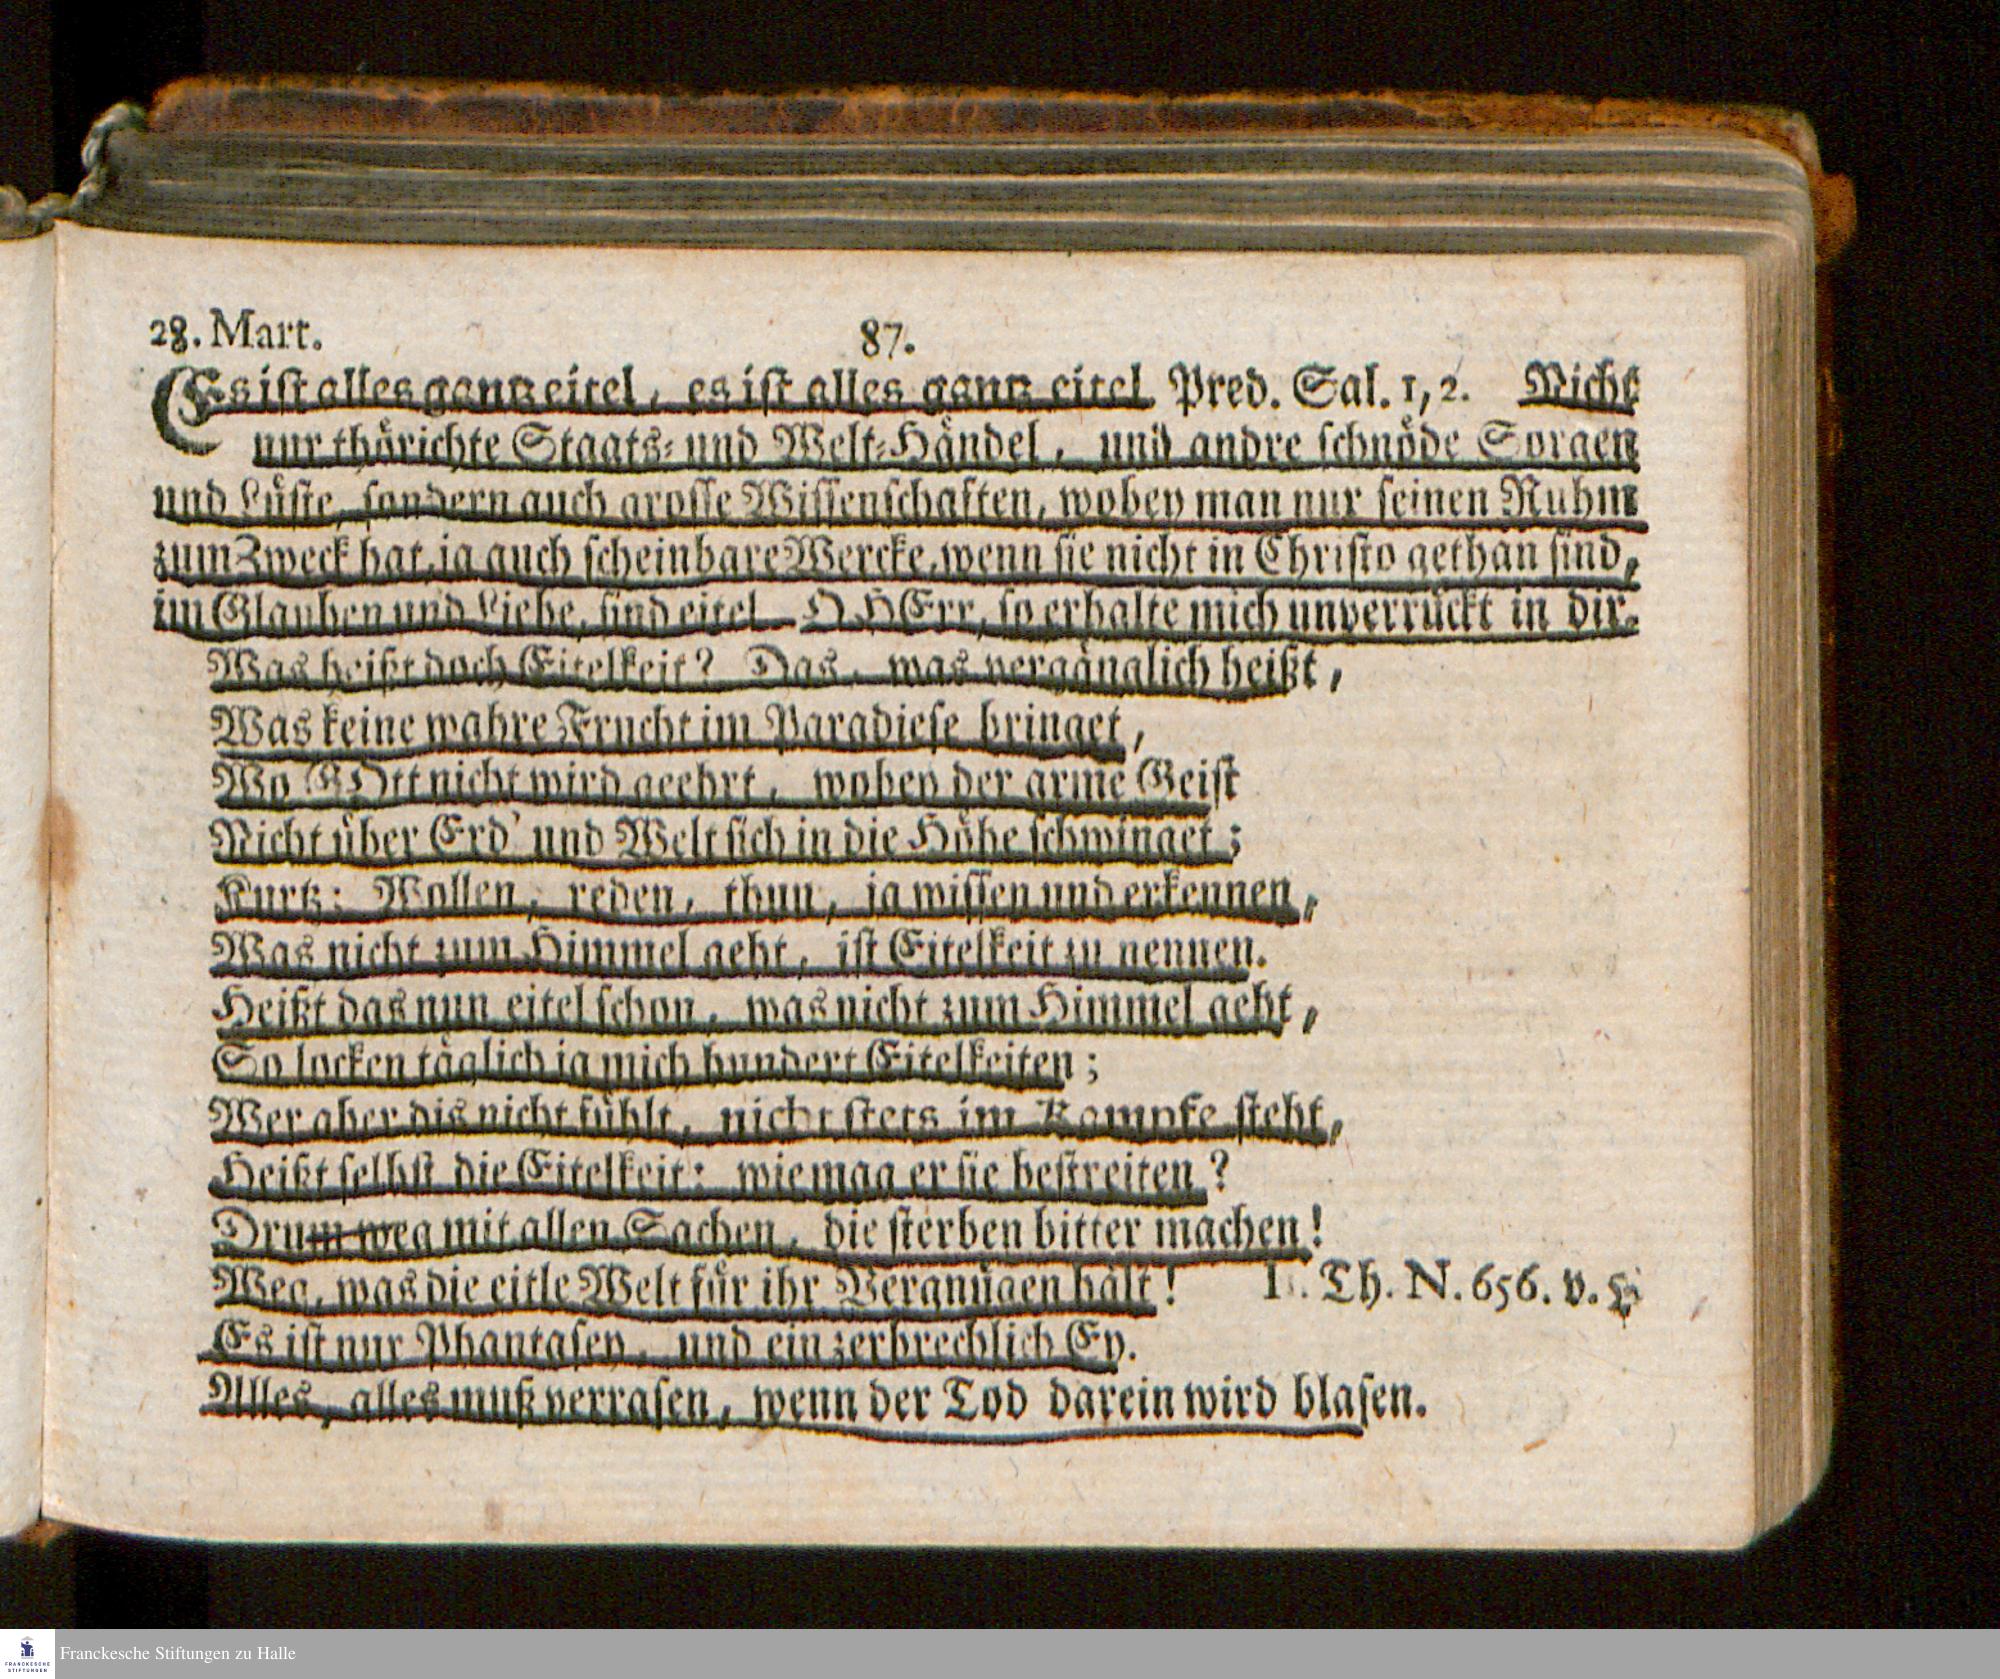 28. Mart. 87.
Es ist alles gantz eitel, es ist alles gantz eitel Pred. Sal. 1, 2. Nicht
nur thörichte Staats- und Welt-Händel, und andre schnöde Sorgen
und Lüste, sondern auch grosse Wissenschaften, wobey man nur seinen Ruhm
zum Zweck hat, ja auch scheinbare Wercke, wenn sie nicht in Christo gethan sind,
im Glauben und Liebe, sind eitel. O HErr, so erhalte mich unverrückt in dir.
Was heißt doch Eitelkeit? Das, was vergänglich heißt,
Was keine wahre Frucht im Paradiese bringet,
Wo GOtt nicht wird geehrt, wobey der arme Geist
Nicht über Erd' und Welt sich in die Höhe schwinget;
Kurtz: Wollen, reden, thun, ja wissen und erkennen,
Was nicht zum Himmel geht, ist Eitelkeit zu nennen.
Heißt das nun eitel schon, was nicht zum Himmel geht,
So locken täglich ja mich hundert Eitelkeiten;
Wer aber dis nicht fühlt, nicht stets im Kampfe steht,
Heißt selbst die Eitelkeit: wie mag er sie bestreiten?
Drum weg mit allen Sachen, die sterben bitter machen!
Weg, was die eitle Welt für ihr Vergnügen hält! Th. N. 656. v.
Es ist nur Phantasey, und ein zerbrechlich Ey.
Alles, alles muß verrasen, wenn der Tod darein wird blasen.
FRANCKESCHE
STIFTUNGEN
Franckesche Stiftungen zu Halle